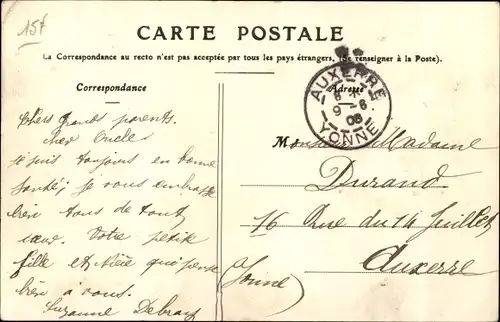 15f
CARTE POSTALE
La Correspondance au recto n'est pas acceptée par tous les pays étrangers, (Se renseigner à la Poste).
Correspondance
Adresse
AUXERRE
9 - 8
08
YONNE
Chers grands parents.
Cher Oncle
je suis toujours en bonne
santé; je vous embrasse
bien tous de tout
cœur. Votre petite
fille et Nièce qui pense
bien à vous.
Suzanne
Monsieur Madame
Durand
16 Rue du 14 Juillet
Auxerre
Yonne